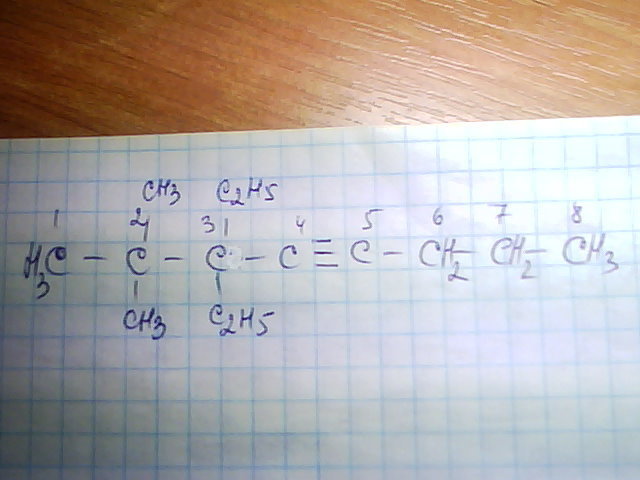 CH3 C2H5
1 2 3 4 5 6 7 8
H3C – C – C – C ≡ C – CH2 – CH2 – CH3
CH3 C2H5